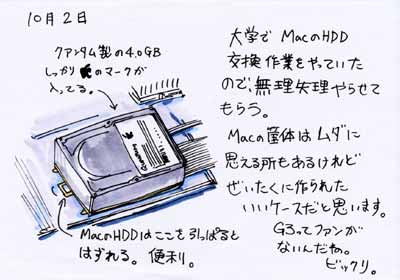 10月2日
クァンタム製の4.0GB
しっかり のマークが
入ってる。
大学で MacのHDD
交換作業をやっていた
ので、無理矢理やらせて
もらう。
Macの筐体はムダに
思える所もあるけれど
ぜいたくに作られた
いいケースだと思います。
G3ってファンが
ないんだね。
ビックリ。
MacのHDDはここを引っぱると
はずれる。便利。